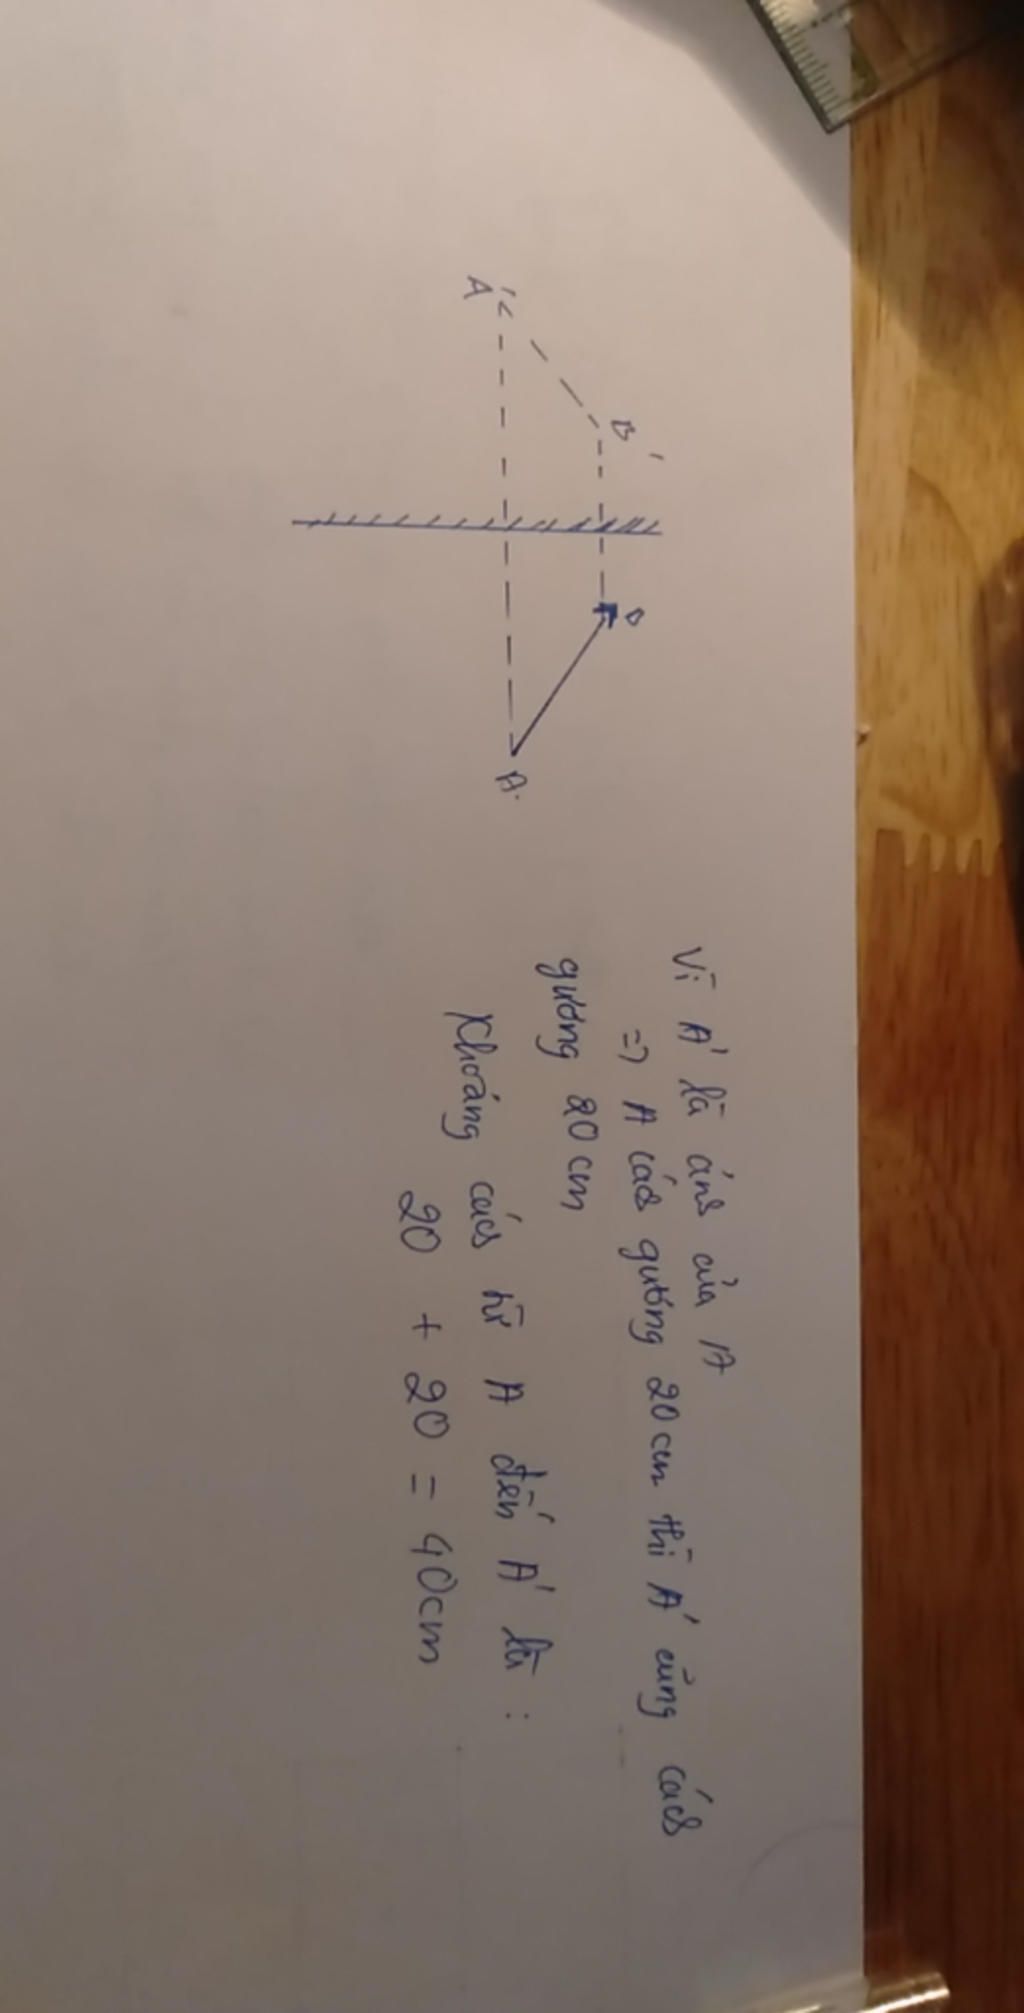 A'
B'
B
A
Vì A' là ảnh của A
=> A cách gương 20 cm thì A' cũng cách
gương 20 cm
Khoảng cách từ A đến A' là :
20 + 20 = 40cm